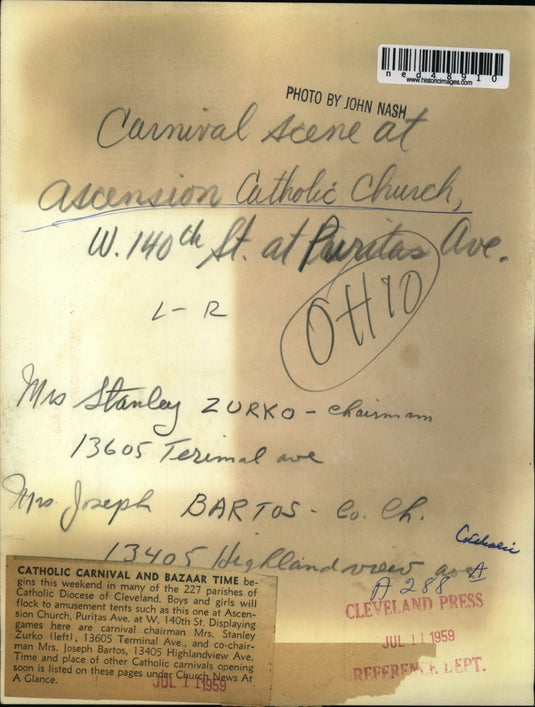 ned48910
www.historicimages.com
PHOTO BY JOHN NASH
Carnival scene at
Ascension Catholic Church,
W. 140th St. at Puritas Ave.
OHIO
L - R
Mrs Stanley ZURKO - Chairmam
13605 Terimal ave
Mrs. Joseph BARTOS - Co. Ch.
13405 Highlandview ave
Catholic
A
A 288
CLEVELAND PRESS
JUL 11 1959
REFERENCE DEPT.
CATHOLIC CARNIVAL AND BAZAAR TIME be-
gins this weekend in many of the 227 parishes of
Catholic Diocese of Cleveland. Boys and girls will
flock to amusement tents such as this one at Ascen-
sion Church, Puritas Ave. at W. 140th St. Displaying
games here are carnival chairman Mrs. Stanley
Zurko (left), 13605 Terminal Ave., and co-chair-
man Mrs. Joseph Bartos, 13405 Highlandview Ave.
Time and place of other Catholic carnivals opening
soon is listed on these pages under Church News At
A Glance.
JUL 11 1959